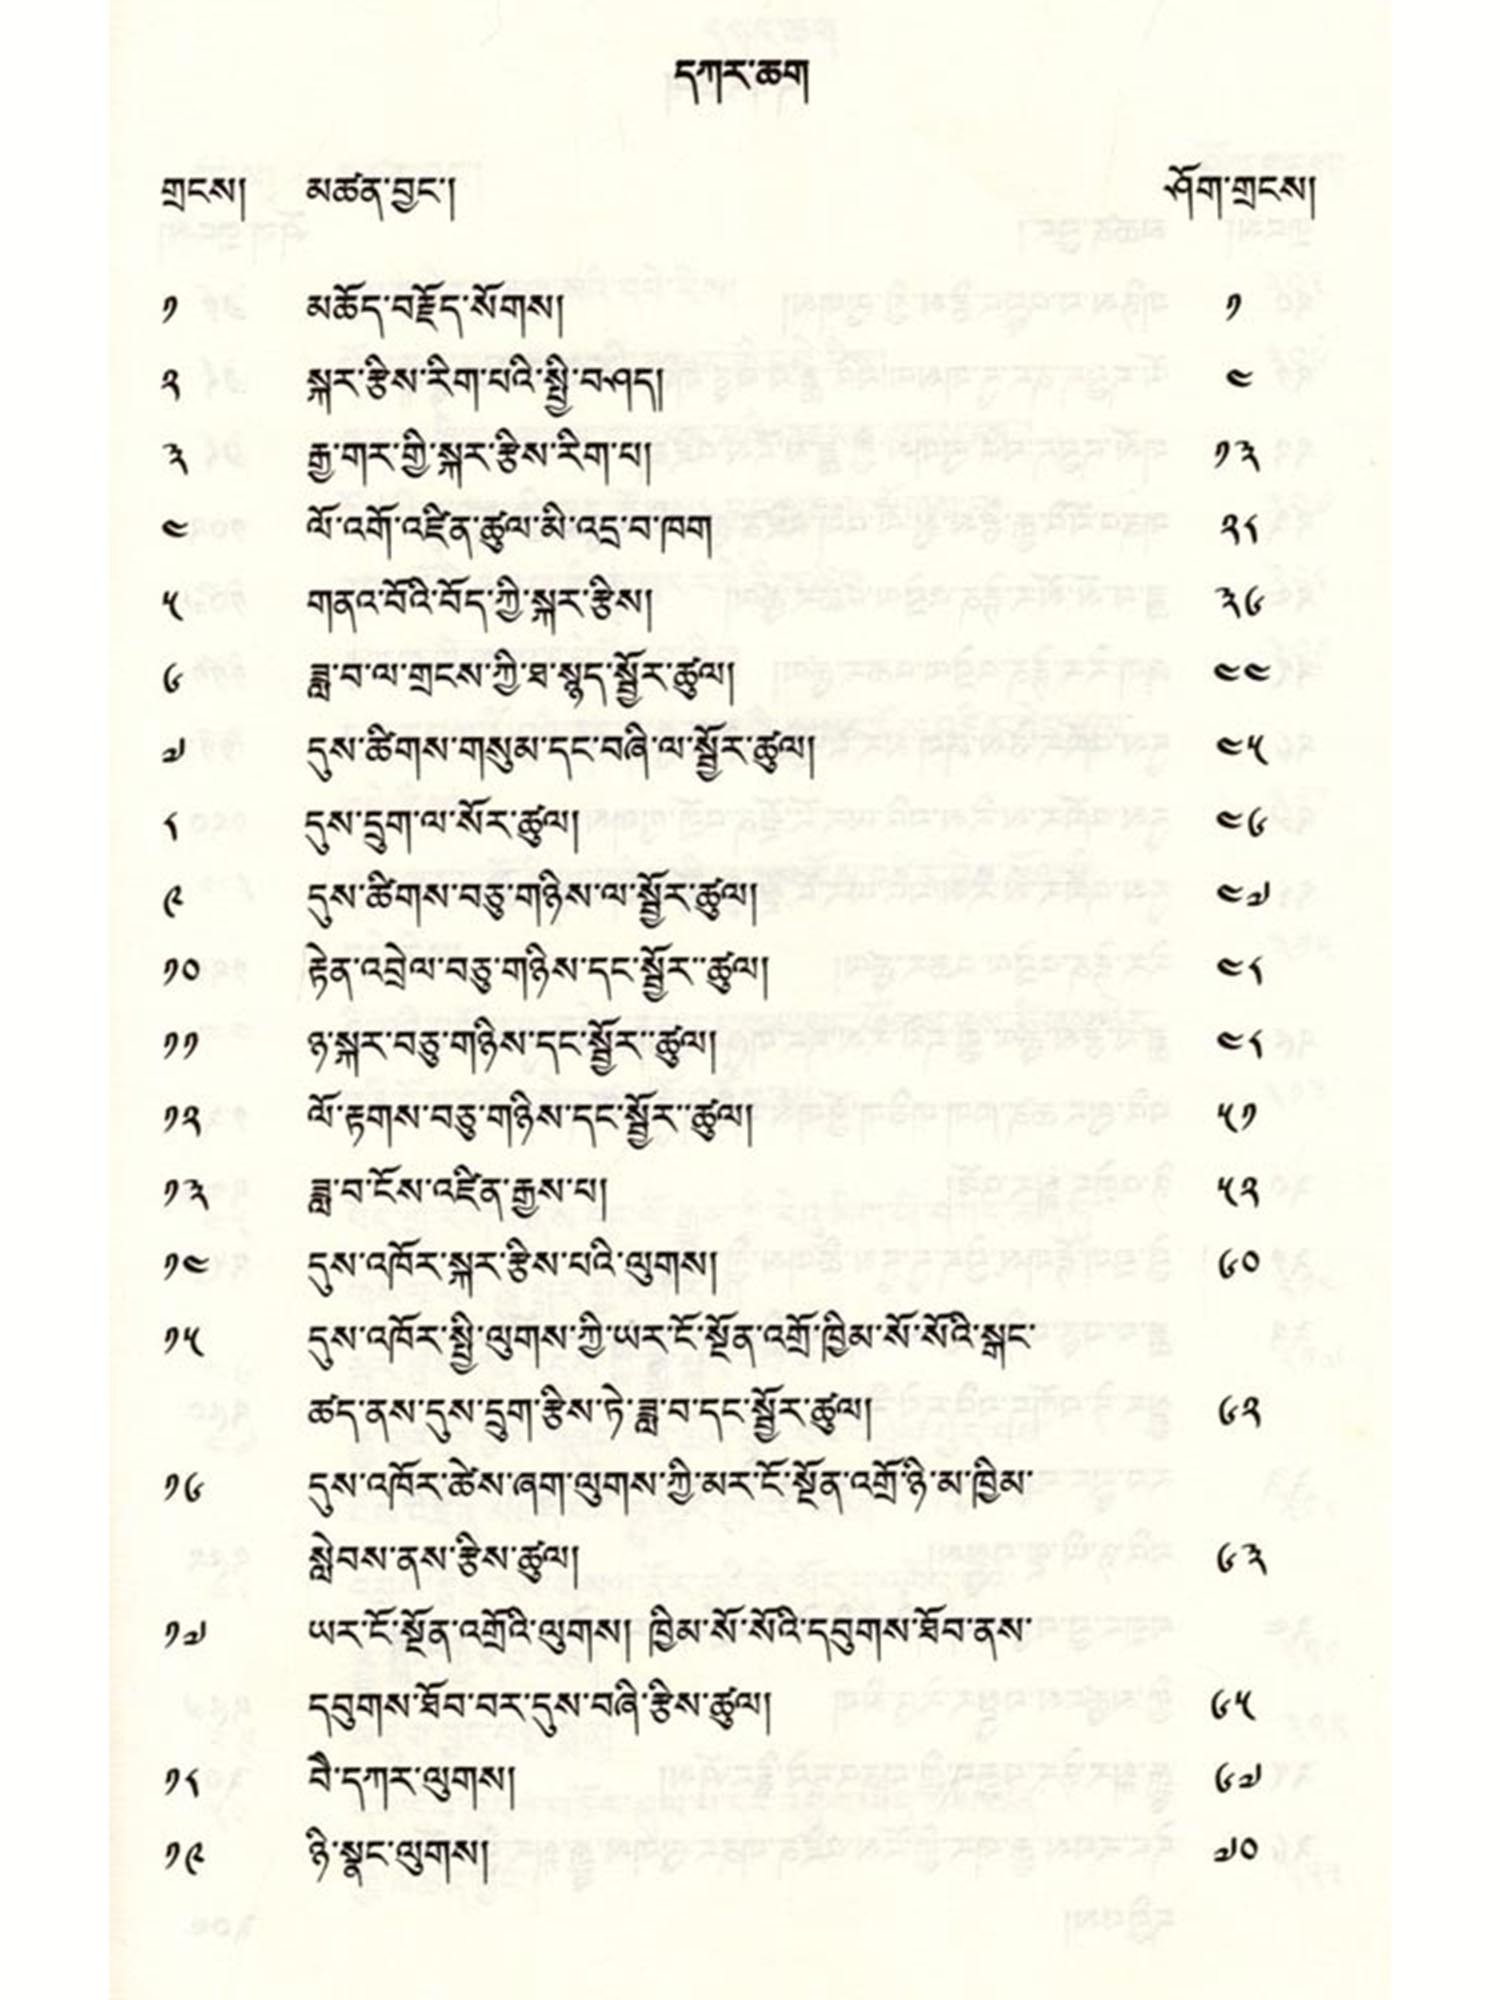 དཀར་ཆག
གྲངས། མཚན་བྱང་། ཤོག་གྲངས།
༡ མཆོད་བརྗོད་སོགས། ༡
༢ སྐར་རྩིས་རིག་པའི་སྤྱི་བཤད། ༤
༣ རྒྱ་གར་གྱི་སྐར་རྩིས་རིག་པ། ༡༣
༤ ལོ་འགོ་འཛིན་ཚུལ་མི་འདྲ་བ་ཁག ༢༨
༥ གནའ་བོའི་བོད་ཀྱི་སྐར་རྩིས། ༣༦
༦ ཟླ་བ་ལ་གྲངས་ཀྱི་ཐ་སྙད་སྦྱོར་ཚུལ། ༤༤
༧ དུས་ཚིགས་གསུམ་དང་བཞི་ལ་སྦྱོར་ཚུལ། ༤༥
༨ དུས་དྲུག་ལ་སོར་ཚུལ། ༤༦
༩ དུས་ཚིགས་བཅུ་གཉིས་ལ་སྦྱོར་ཚུལ། ༤༧
༡༠ རྟེན་འབྲེལ་བཅུ་གཉིས་དང་སྦྱོར་་ཚུལ། ༤༨
༡༡ ཉ་སྐར་བཅུ་གཉིས་དང་སྦྱོར་་ཚུལ། ༤༨
༡༢ ལོ་རྟགས་བཅུ་གཉིས་དང་སྦྱོར་་ཚུལ། ༥༡
༡༣ ཟླ་བ་ངོས་འཛིན་རྒྱས་པ། ༥༢
༡༤ དུས་འཁོར་སྐར་རྩིས་པའི་ལུགས། ༦༠
༡༥ དུས་འཁོར་སྤྱི་ལུགས་ཀྱི་ཡར་ངོ་སྔོན་འགྲོ་ཁྱིམ་སོ་སོའི་སྒང་
ཚད་ནས་དུས་དྲུག་རྩིས་ཏེ་ཟླ་བ་དང་སྦྱོར་ཚུལ། ༦༢
༡༦ དུས་འཁོར་ཚེས་ཞག་ལུགས་ཀྱི་མར་ངོ་སྔོན་འགྲོ་ཉི་མ་ཁྱིམ་
སླེབས་ནས་རྩིས་ཚུལ། ༦༣
༡༧ ཡར་ངོ་སྔོན་འགྲོའི་ལུགས། ཁྱིམ་སོ་སོའི་དབུགས་ཐོབ་ནས་
དབུགས་ཐོབ་བར་དུས་བཞི་རྩིས་ཚུལ། ༦༥
༡༨ བཻ་དཀར་ལུགས། ༦༧
༡༩ ཉི་སྣང་ལུགས། ༧༠